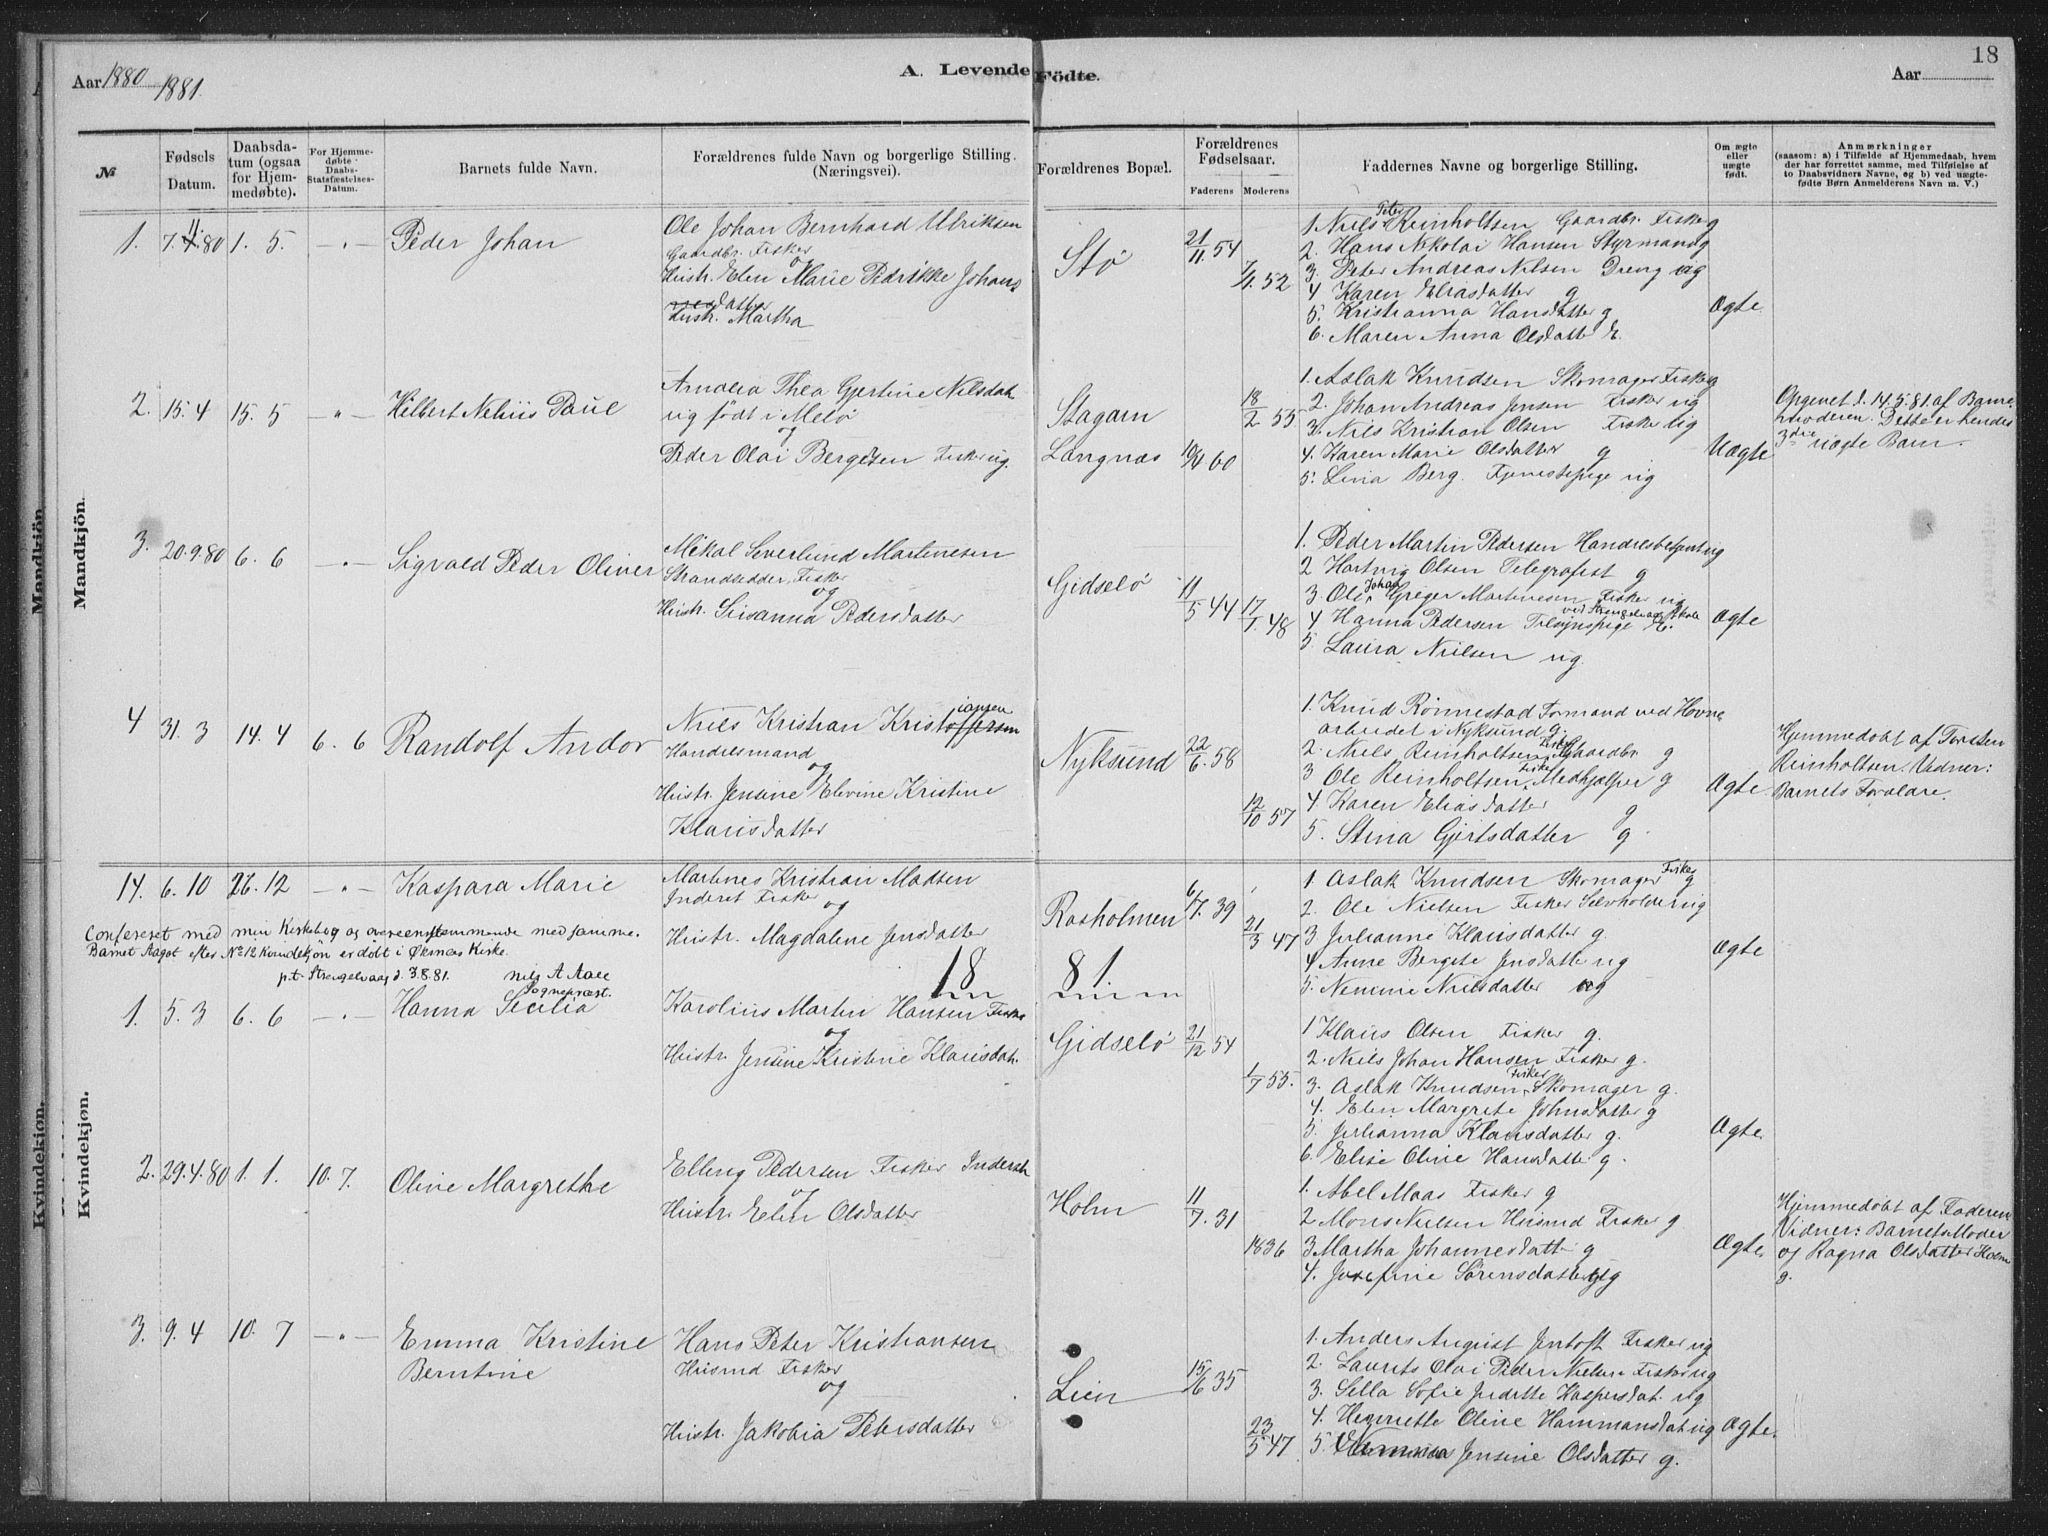 18
Aar 1880
1881.
A. Levende Födte.
Aar
№
Fødsels Datum.
Daabsdatum (ogsaa for Hjemmedøbte).
For Hjemmedøbte Daabs-Statsfæstelses-Datum.
Barnets fulde Navn.
Forældrenes fulde Navn og borgerlige Stilling. (Næringsvei).
Forældrenes Bopæl.
Forældrenes Fødselsaar.
Faderens
Moderens
Faddernes Navne og borgerlige Stilling.
Om ægte eller uægte født.
Anmærkninger
(saasom: a) i Tilfælde af Hjemmedaab, hvem der har forrettet samme, med Tilføielse af to Daabsvidners Navne, og b) ved uægtefødte Børn Anmelderens Navn m. V.)
Mandkjön.
Mandkjön.
1. 7. 11. 80 1. 5. — „ — Peder Johan
Ole Johan Bernhard Ulriksen
Gaardbr. Fisker
og
Hustr. Elen Marie Pedrikke Johans
datter
Hustr. Martha
Stø
21/11 54
7/1. 52
1. Niels Peter Reinholtsen Gaardbr. Fisker g
2. Hans Nikolai Hansen Styrmand g
3. Peter Andreas Nilsen Dreng ug
4 Karen Eliasdatter g
5. Kristianna Hansdatter g
6. Maren Anna Olsdatte E.
Ægte
2. 15. 4 15. 5 — „ — Hilbert Nelius Paul
Amalia Thea Gjertine Nilsdat.
ug født i Melø
og
Peder Olai Bergetsen Fisker ug.
Stagarn
Langnæs
18/2 55
10/4 60
1. Aslak Knudsen Skomager Fisker g
2. Johan Andreas Jensen Fisker ug
3. Nils Kristian Olsen Fisker ug
4. Karen Marie Olsdatter g
5. Lina Berg. Tjenestepige ug
Uægte
Opgivet d. 14.5.81. af Barne-
moderen. Dette er hendes
3die uægte Barn.
3. 20. 9. 80 6. 6 — „ — Sigvald Peder Oliver
Mikal Severlund Martinesen
Strandsidder, Fisker
og
Hustr. Susanna Pedersdatter
Gidselø
11/5 44
17/1. 48
1. Peder Martin Pedersen Handelsbetjent ug
2 Hartvig Olsen Telegrafist g
3. Ole Johan Greger Martinesen Fisker ug
4 Hanna Pedersen Tilsynspige ved Strengelvaag Skole E.
5. Laura Nielsen ug.
Ægte
4 31. 3 14. 4 6. 6 Randolf Andor
Niels Kristian Kristoffersen
iansen
Handelsmand
og
Hustr. Jensine Elevine Kristine
Klausdatter
Nyksund
22/6. 58
12/10 57
1. Knud Rönnestad Formand ved Havne
arbeidet i Nyksund g.
2. Niels Reinholtsen Fisker Gaardbr. g
3 Ole Reinholtsen Fisker Medhjælper g
4. Karen Eliasdatter g
5. Stina Gjertsdatter g.
Ægte.
Hjemmedøbt af Torsten
Reinholtsen. Vidner:
Barnets Forældre.
Kvindekjön.
Kvindekjön.
14. 6. 10 26. 12 — „ — Kaspara Marie
Martines Kristian Madsen
Inderst Fisker
og
Hustr. Magdalene Jensdatter
Rosholmen
6/7. 39
21/3 47
1. Aslak Knudsen Skomager Fisker g
2. Ole Nielsen Fisker Selvholder ug
3 Julianne Klausdatter g.
4 Anne Bergete Jensdatter ug
5. Nemine Nielsdatter ug
Ægte
Confereret med min Kirkebog og overeenstemmende med samme.
Barnet Aagot efter No 12 Kvindekjön er døbt i Øksnes Kirke.
p.t. Strengelvaag d. 3.8.81. Nils A Aall
Sognepræst.
18 81.
1. 5. 3 6. 6 — „ — Hanna Secilia
Karolius Martin Hansen Fisker
og
Hustr. Jensine Kristine Klausdat.
Gidselø
21/12 54
1/7 55.
1 Klaus Olsen Fisker g.
2. Niels Johan Hansen Fisker g.
3. Aslak Knudsen Fisker Skomager g.
4. Elen Margrete Johnsdatter g
5. Julianna Klausdatter g.
6. Elise Oline Hansdatter g.
Ægte.
2. 29. 4. 80 1. 1. 10. 7. Oline Margrethe
Elling Pedersen Fisker Inderst
og
Hustr. Elen Olsdatter
Holm
11/7. 31
1836
1. Abel Maas Fisker g
2 Mons Nielsen Husmd Fisker g
3 Martha Johannesdatter g
4. Josefine Sörensdatter ug
Ægte
Hjemmedøbt af Faderen
Vidner: Barnets Moder
og Ragna Olsdatter Holm
g.
3. 9. 4 10. 7 — „ — Emma Kristine
Berntine
Hans Peter Kristiansen
Husmd Fisker
og
Hustr. Jakobia Petersdatter
Lien
15/6 35
23/5 47
1. Anders August Jentoft Fisker ug
2. Laurits Olai Peder Nielsen Fisker ug
3. Sella Sofie Judette Kaspersdat. ug
4. Henriette Oline Hammansdat ug
5. Jensine Olsdatter g.
Ægte.